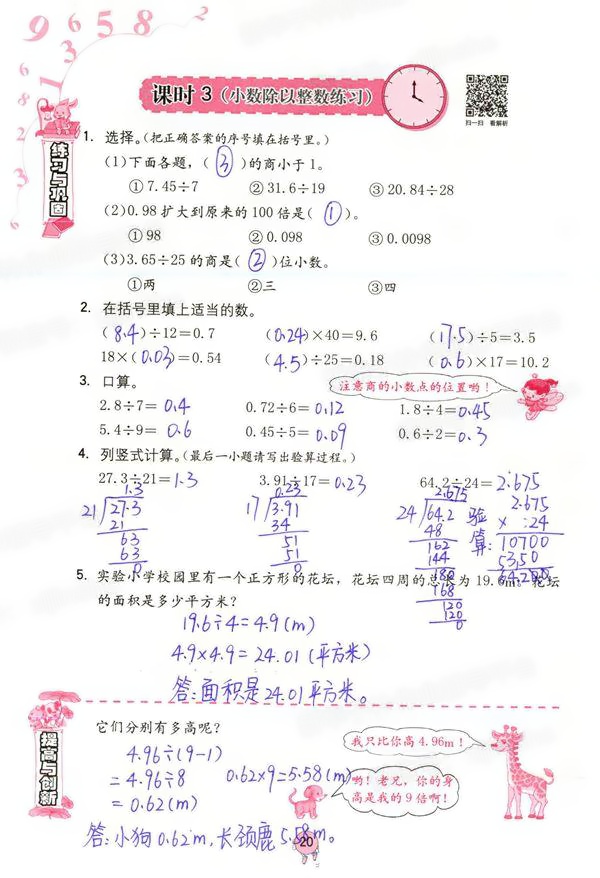 9 6 5 8
课时 3 (小数除以整数练习)
扫一扫 看解析
练习与巩固
1. 选择。(把正确答案的序号填在括号里。)
(1)下面各题,( ③ )的商小于1。
①7.45÷7 ②31.6÷19 ③20.84÷28
(2)0.98扩大到原来的100倍是( ① )。
①98 ②0.098 ③0.0098
(3)3.65÷25的商是( ② )位小数。
①两 ②三 ③四
2. 在括号里填上适当的数。
(8.4)÷12=0.7 (0.24)×40=9.6 (17.5)÷5=3.5
18×(0.03)=0.54 (4.5)÷25=0.18 (0.6)×17=10.2
3. 口算。
注意商的小数点的位置哟!
2.8÷7=0.4 0.72÷6=0.12 1.8÷4=0.45
5.4÷9=0.6 0.45÷5=0.09 0.6÷2=0.3
4. 列竖式计算。(最后一小题请写出验算过程。)
27.3÷21=1.3 3.91÷17=0.23 64.2÷24=2.675
1.3 0.23 2.675
21 27.3 17 3.91 24 64.2 验算: 2.675
21 34 48 × 24
63 51 162 10700
63 51 144 5350
0 0 180 64.200
168
120
120
0
5. 实验小学校园里有一个正方形的花坛,花坛四周的总长为19.6m,花坛
的面积是多少平方米?
19.6÷4=4.9(m)
4.9×4.9=24.01(平方米)
答:面积是24.01平方米。
提高与创新
它们分别有多高呢?
我只比你高4.96m!
4.96÷(9-1)
=4.96÷8 0.62×9=5.58(m)
=0.62(m)
哟!老兄,你的身
高是我的9倍啊!
答:小狗0.62m,长颈鹿5.58m。
20